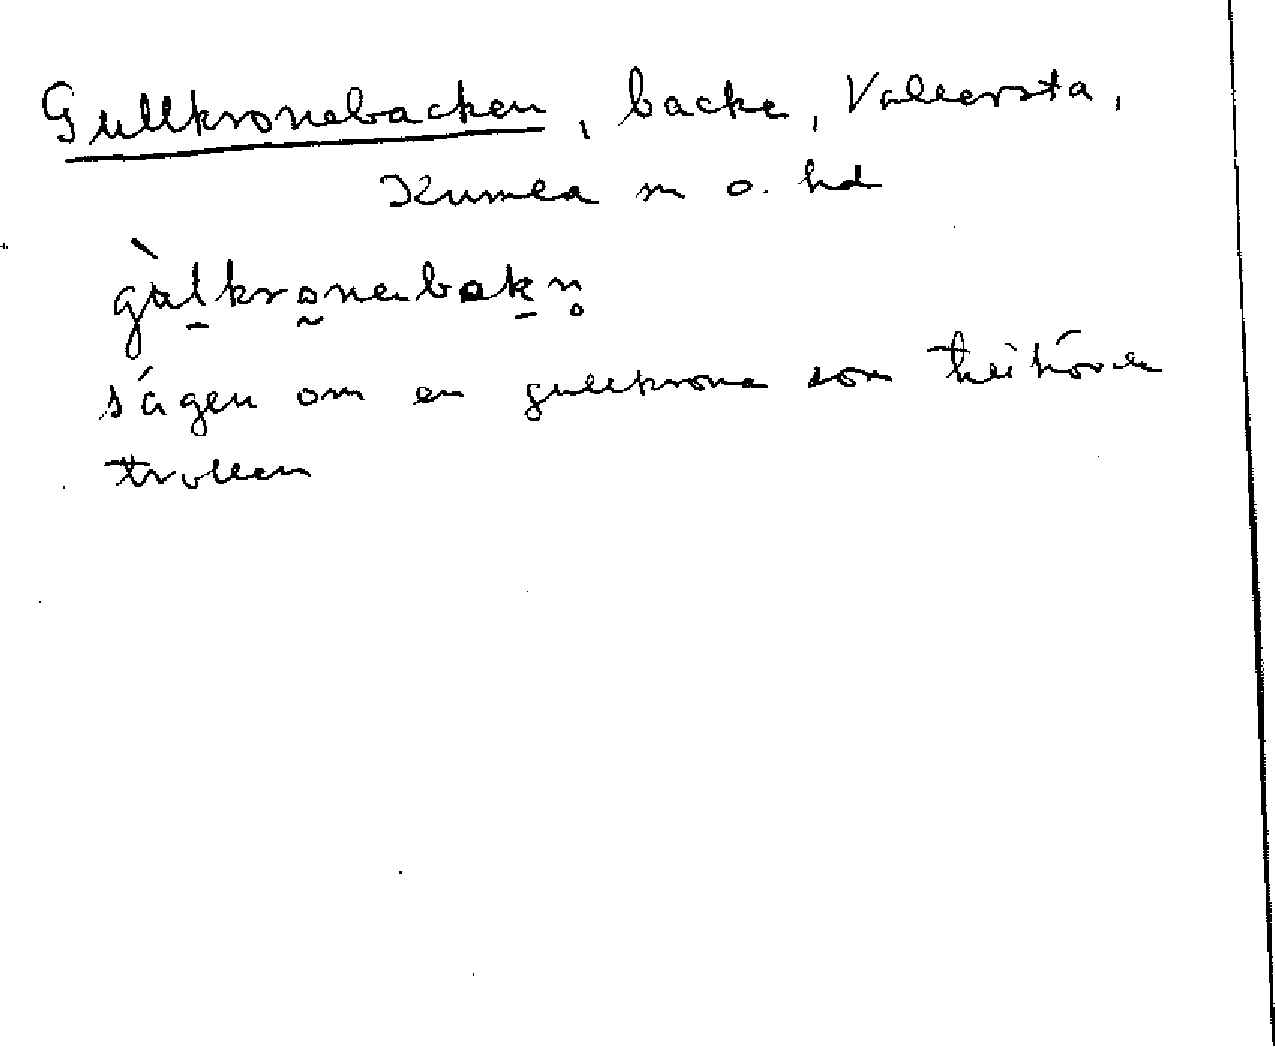 Gullkronebacken, backe, Vallersta,
Kumla sn o. hd
sägen om en gullkrona som tillhörde
trollen